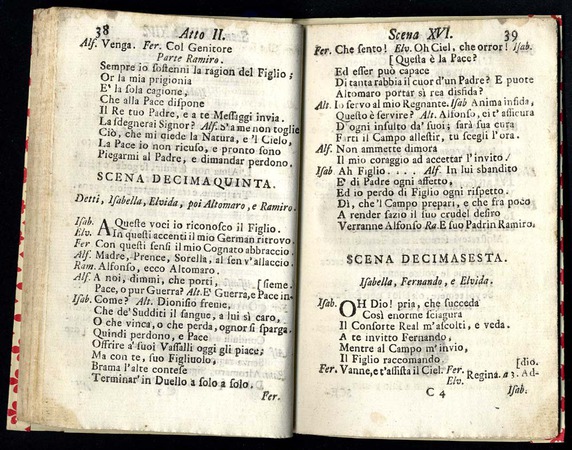 38 Atto II.
Alf. Venga. Fer. Col Genitore
Parte Ramiro.
Sempre io sostenni la ragion del Figlio;
Or la mia prigionia
E' la sola cagione,
Che alla Pace dispone
Il Re tuo Padre, e a te Messaggi invia.
La sdegnerai Signor? Alf. S'a me non toglie
Ciò, che mi diede la Natura, e 'l Cielo,
La Pace io non ricuso, e pronto sono
Piegarmi al Padre, e dimandar perdono.
SCENA DECIMAQUINTA.
Detti, Isabella, Elvida, poi Altomaro, e Ramiro.
Isab. A Queste voci io riconosco il Figlio.
Elv. In questi accenti il mio German ritrovo.
Fer Con questi sensi il mio Cognato abbraccio.
Alf. Madre, Prence, Sorella, al sen v'allaccio.
Ram. Alfonso, ecco Altomaro.
Alf. A noi, dimmi, che porti, [sieme.
Pace, o pur Guerra? Alt. E' Guerra, e Pace in-
Isab. Come? Alt. Dionisio freme,
Che de' Sudditi il sangue, a lui sì caro,
O che vinca, o che perda, ognor si sparga.
Quindi perdono, e Pace
Offrire a' suoi Vassalli oggi gli piace;
Ma con te, suo Figliuolo,
Brama l'alte contese
Terminar' in Duello a solo a solo.
Fer.
Scena XVI. 39
Fer. Che sento! Elv. Oh Ciel, che orror! Isab.
[Questa è la Pace?
Ed esser può capace
Di tanta rabbia il cuor d'un Padre? E puote
Altomaro portar sì rea disfida?
Alt. Io servo al mio Regnante. Isab Anima infida,
Questo è servire? Alt. Alfonso, ei t'assicura
D'ogni insulto da' suoi; sarà sua cura
Farti il Campo allestir, tu scegli l'ora.
Alf. Non ammette dimora
Il mio coraggio ad accettar l'invito/
Isab Ah Figlio. . . . Alf. In lui sbandito
E' di Padre ogni affetto,
Ed io perdo di Figlio ogni rispetto.
Dì, che 'l Campo prepari, e che fra poco
A render sazio il suo crudel desiro
Verranne Alfonso Ra. E suo Padrin Ramiro.
SCENA DECIMASESTA.
Isabella, Fernando, e Elvida.
Isab. OH Dio! pria, che succeda
Così enorme sciagura
Il Consorte Real m'ascolti, e veda.
A te invitto Fernando,
Mentre al Campo m'invio,
Il Figlio raccomando. [dio.
Fer. Vanne, e t'assista il Ciel. Fer. Elv. Regina. a 3. Ad-
C 4 Isab.